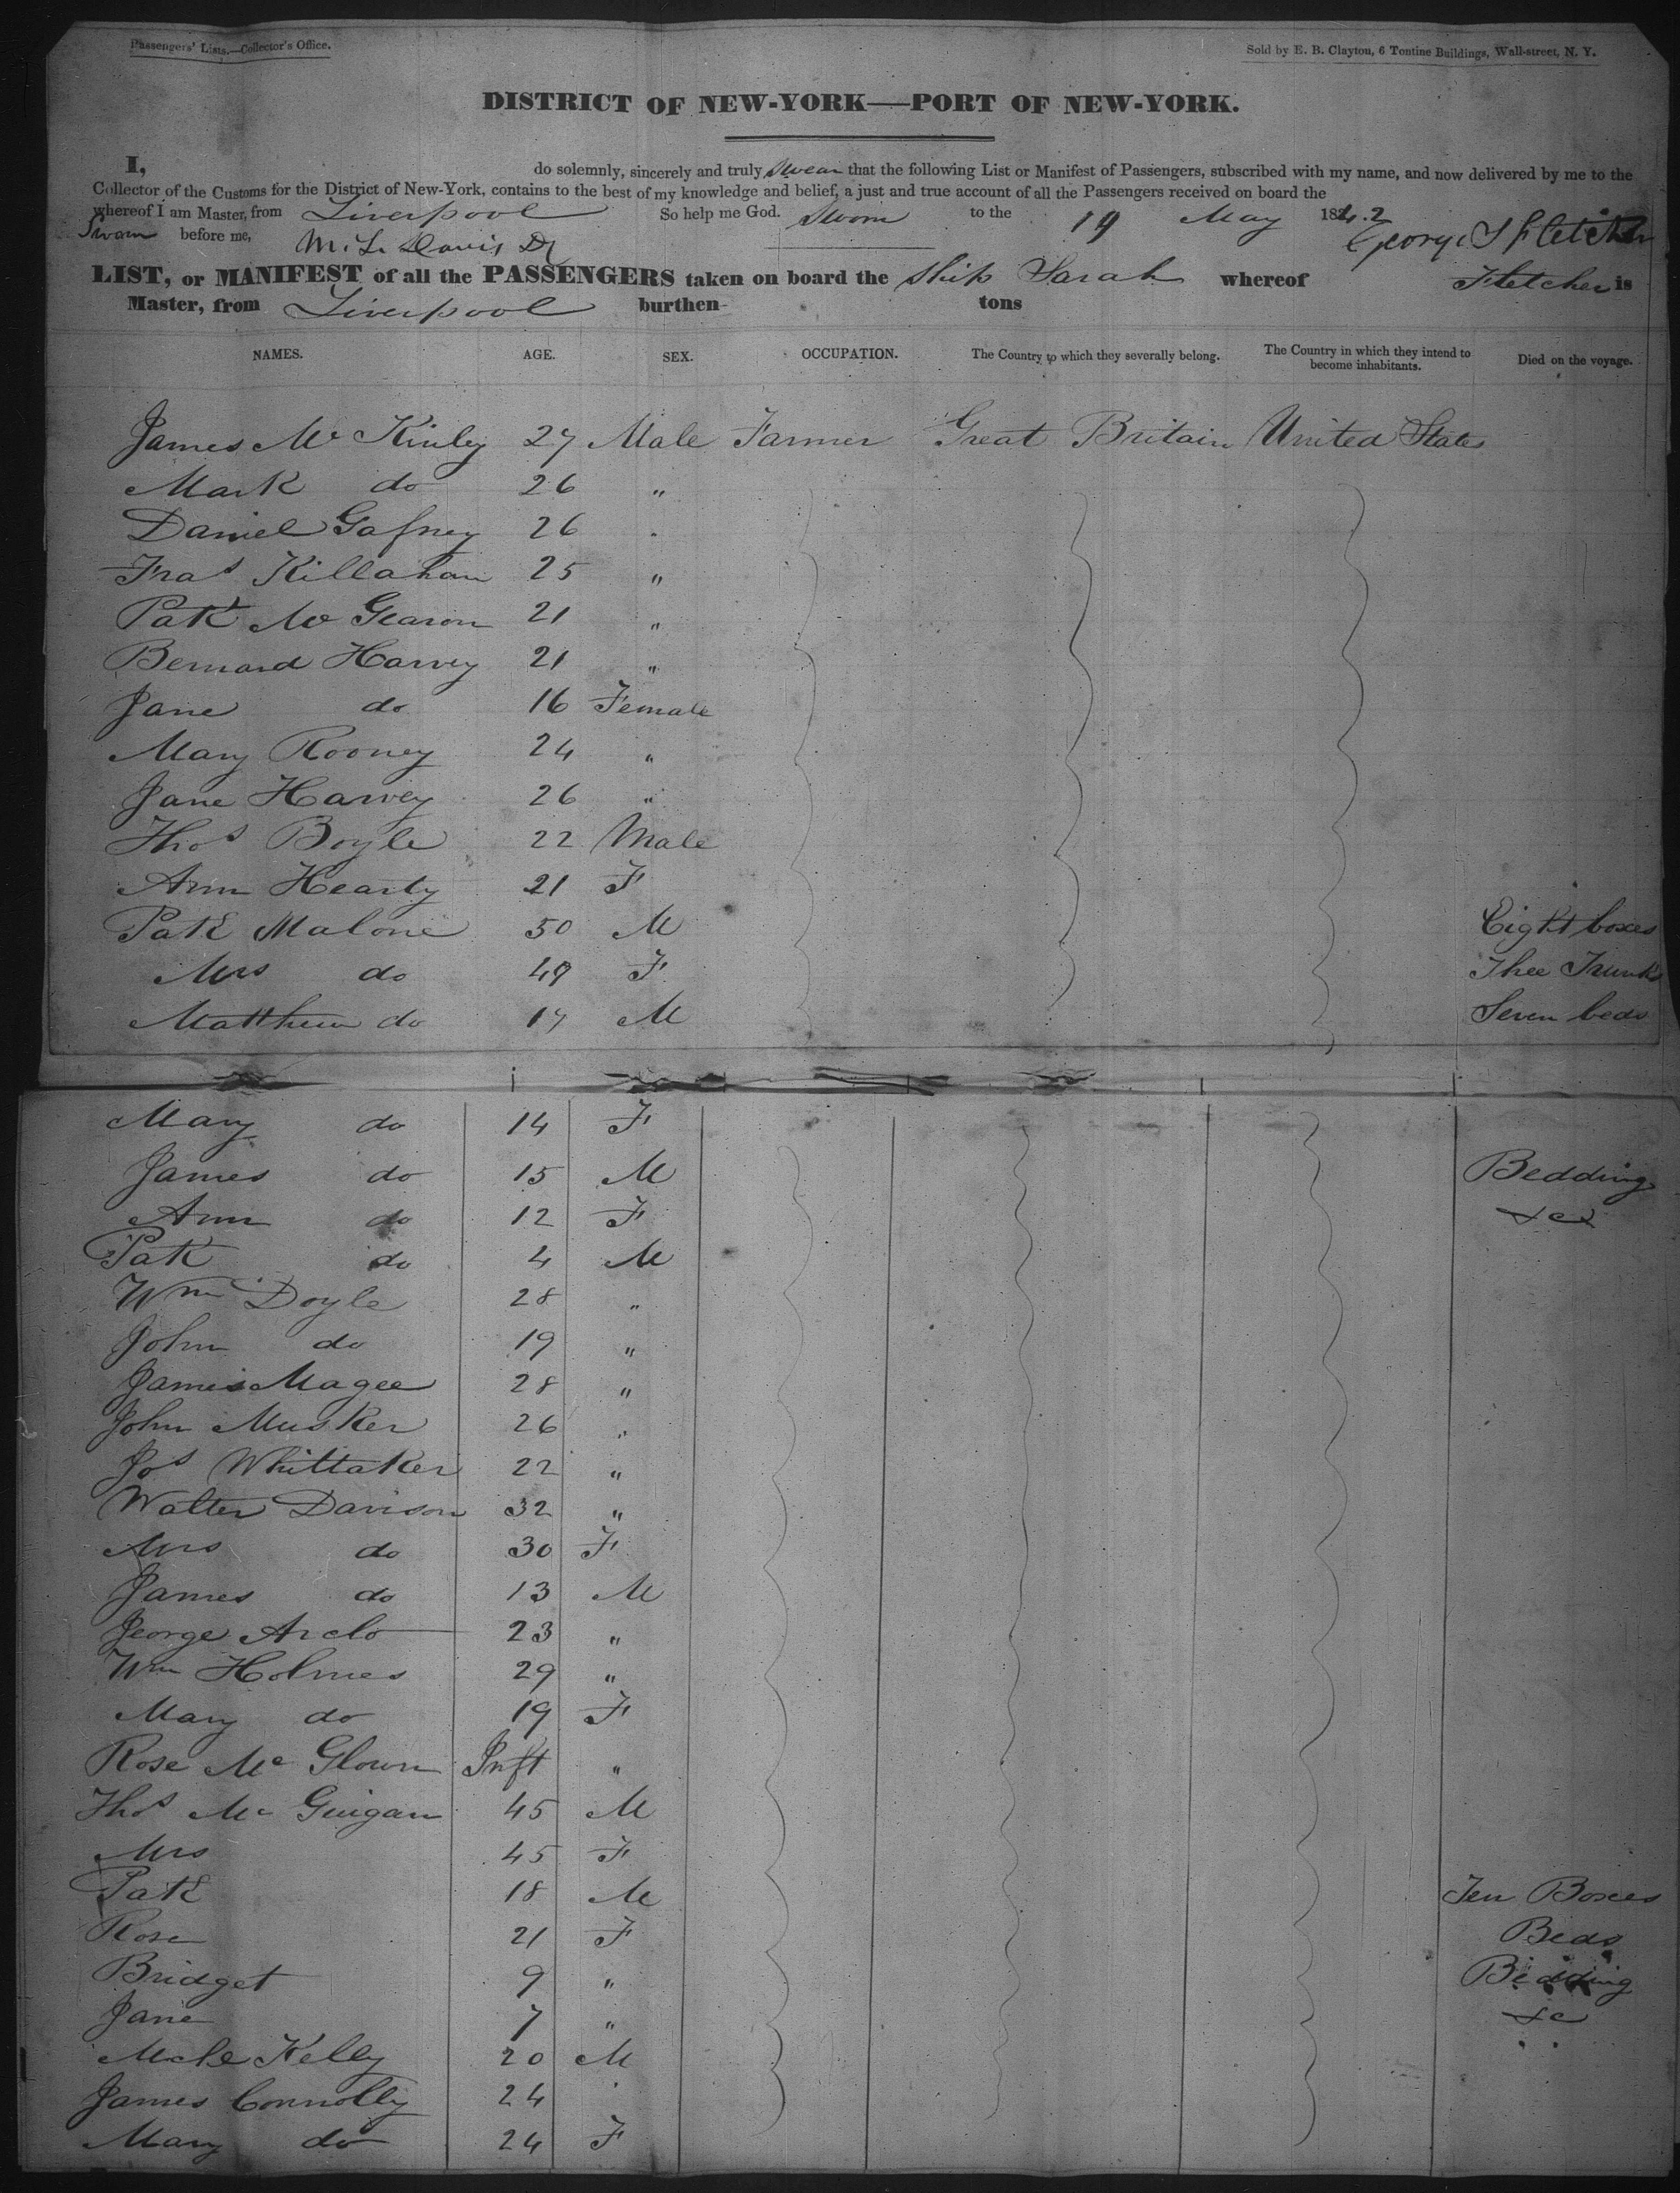 Passengers' Lists.—Collector's Office.
Sold by E. B. Clayton, 6 Tontine Buildings, Wall-street, N. Y.
DISTRICT OF NEW-YORK—PORT OF NEW-YORK.
I, do solemnly, sincerely and truly swear that the following List or Manifest of Passengers, subscribed with my name, and now delivered by me to the
Collector of the Customs for the District of New-York, contains to the best of my knowledge and belief, a just and true account of all the Passengers received on board the
whereof I am Master, from Liverpool So help me God. Sworn to the 19 May 1842
Sworn before me, M. L. Davis George S Fletcher
LIST, or MANIFEST of all the PASSENGERS taken on board the Ship Sarah whereof Fletcher is
Master, from Liverpool burthen tons
NAMES. AGE. SEX. OCCUPATION. The Country to which they severally belong. The Country in which they intend to become inhabitants. Died on the voyage.
James Mc Kinley 27 Male Farmer Great Britain United States
Mark do 26 "
Daniel Gafney 26 "
Fras Killahan 25 "
Patk Mc Gearon 21 "
Bernard Harvey 21 "
Jane do 16 Female
Mary Rooney 24 "
Jane Harvey 26 "
Thos Boyle 22 Male
Ann Hearty 21 F
Patk Malone 50 M Eight boxes
Mrs do 49 F Thee Trunks
Matthew do 17 M Seven beds
Mary do 14 F
James do 15 M Bedding
Ann do 12 F &c
Patk do 4 M
Wm Doyle 28 "
John do 19 "
James Magee 28 "
John Musker 26 "
Jos Whittaker 22 "
Walter Davison 32 "
Mrs do 30 F
James do 13 M
George Arclo 23 "
Wm Holmes 29 "
Mary do 19 F
Rose Mc Glown Inft "
Thos Mc Guigan 45 M
Mrs 45 F
Patk 18 M Ten Boxes
Rose 21 F Beds
Bridget 9 " Bedding
Jane 7 " &c
Mchl Kelly 20 M
James Connolly 24 "
Mary do 24 F